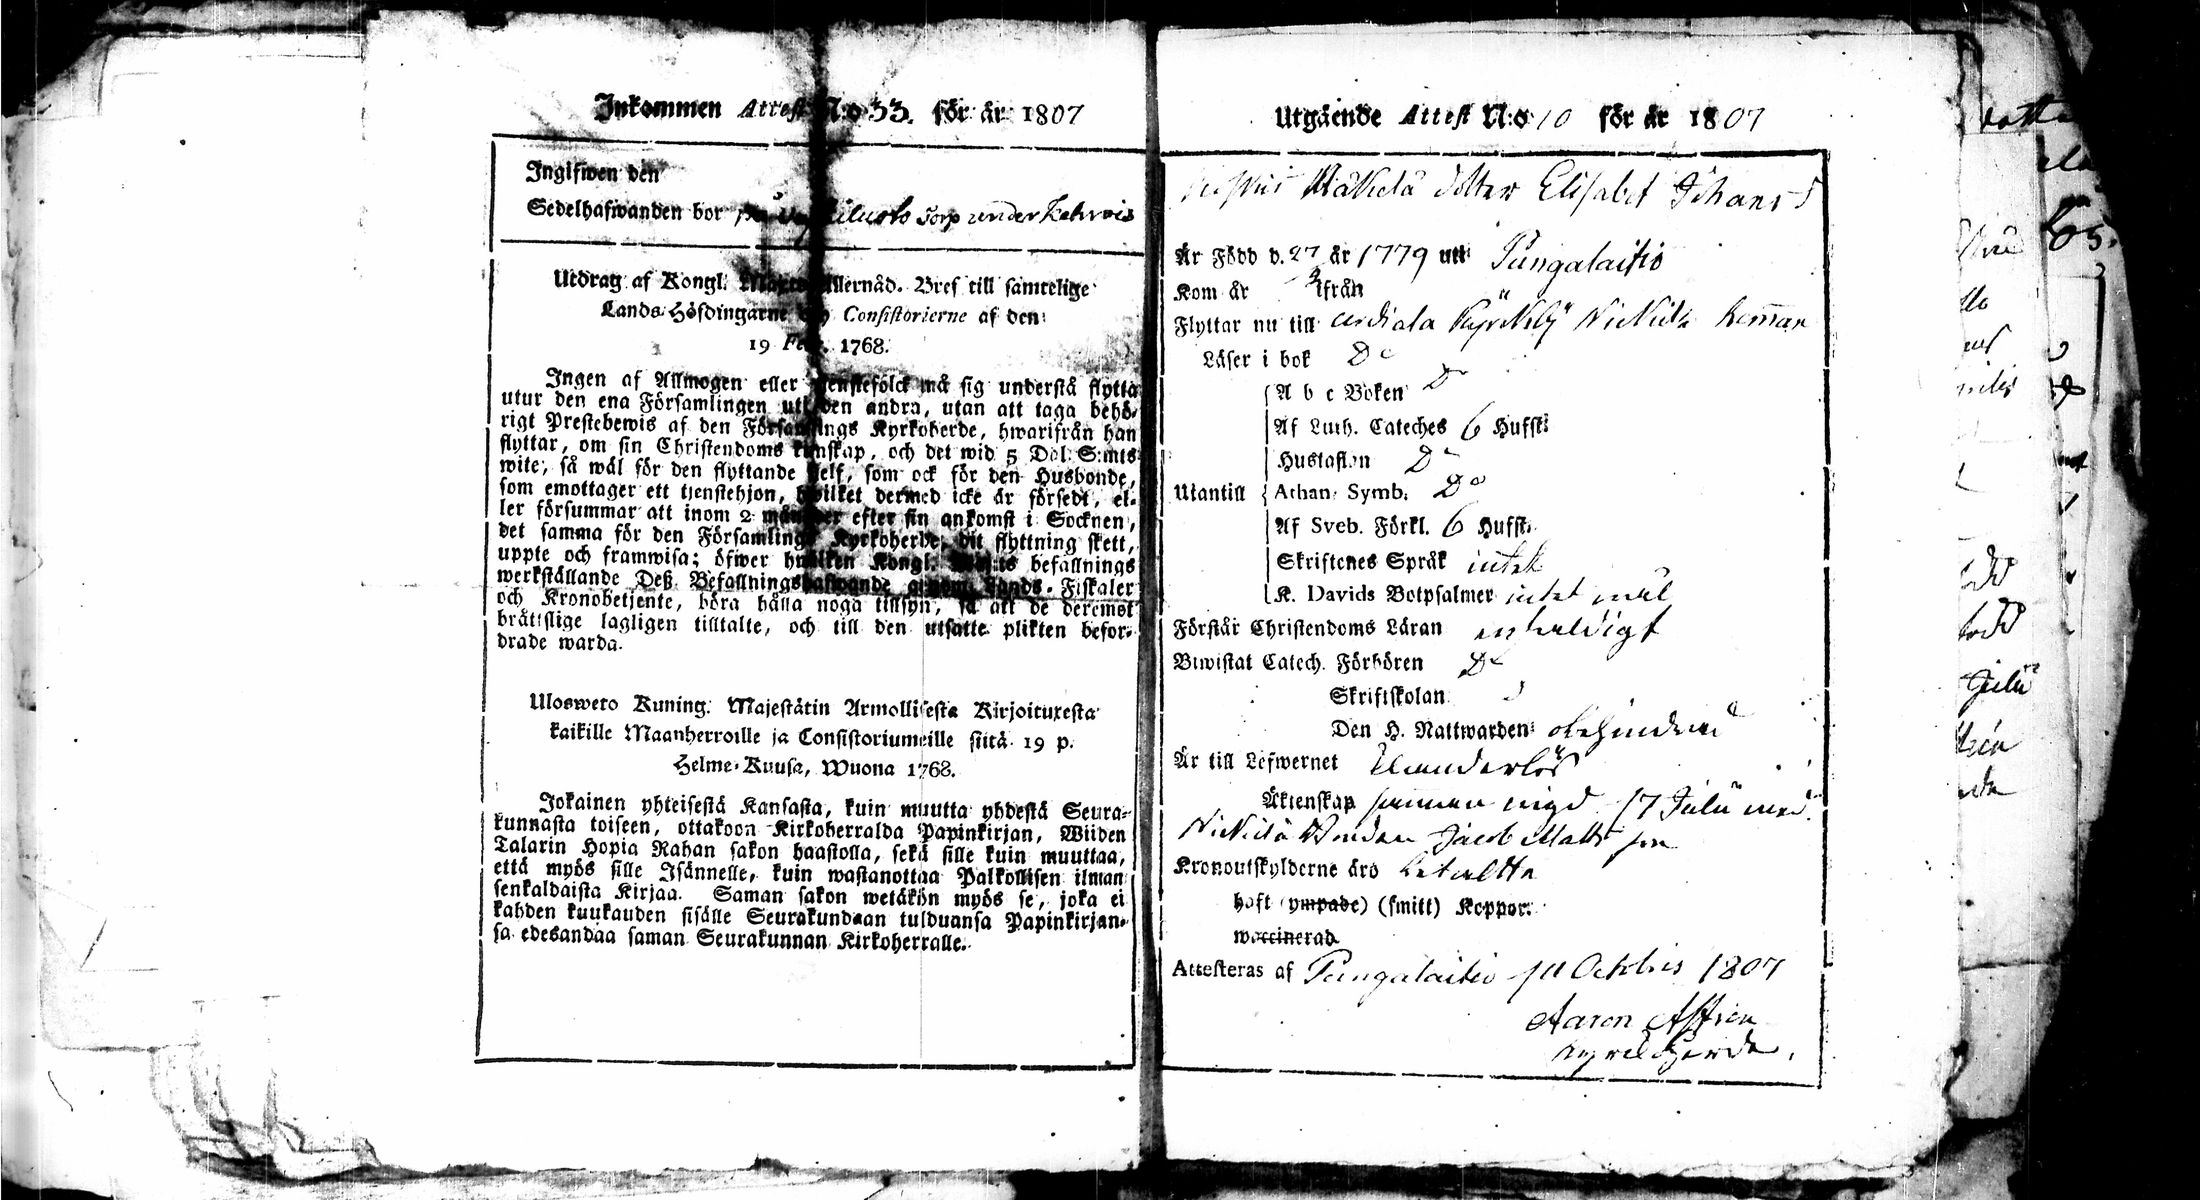 Inkommen Attest N:o 33. för år 1807
Ingifwen den
Sedelhafwanden bor på Torp under
Utdrag af Kongl. Maj:ts Allernåd. Bref till samtelige
Lands-Höfdingarne och Consistorierne af den
19 Febr. 1768.
Ingen af Allmogen eller Tjenstefolck må sig understå flytta
utur den ena Församlingen uti den andra, utan att taga behö-
rigt Prestebewis af den Församlings Kyrkoherde, hwarifrån han
flyttar, om sin Christendoms kunskap, och det wid 5 Dal. S:mts
wite, så wäl för den flyttande self, som ock för den Husbonde,
som emottager ett tjenstehjon, hwilket dermed icke är försedt, el-
ler försummar att inom 2 månader efter sin ankomst i Socknen,
det samma för den Församlings Kyrkoherde, dit flyttning skett,
uppte och framwisa; öfwer hwilken Kongl. Maj:ts befallnings
werkställande Deß Befallningshafwande genom Lands-Fiskaler
och Kronobetjente, böra hålla noga tillsyn, så att de deremot
bråttslige lagligen tilltalte, och till den utsatte plikten befor-
drade warda.
Ulosweto Kuning. Majestätin Armollisesta Kirjoituxesta
kaikille Maanherroille ja Consistoriumeille siitä 19 p.
Helme-Kuusa, Wuona 1768.
Jokainen yhteisestä Kansasta, kuin muutta yhdestä Seura-
kunnasta toiseen, ottakoon Kirkoherralda Papinkirjan, Wiiden
Talarin Hopia Rahan sakon haastolla, sekä sille kuin muuttaa,
että myös sille Isännelle, kuin wastanottaa Palkollisen ilman
senkaldaista Kirjaa. Saman sakon wetäkön myös se, joka ei
kahden kuukauden sisälle Seurakundaan tulduansa Papinkirjan-
sa edesandaa saman Seurakunnan Kirkoherralle.
Utgående Attest N:o 10 för år 1807
Mäkelä dotter Elisabet Johans D
Är Född d. 27 år 1779 uti Pungalaitio
Kom år ifrån
Flyttar nu till Urdiala Kyrkby Nickilä hemman
Läser i bok Do
A b c Boken Do
Af Luth. Cateches 6 Hufst:
Hustaflan Do
Utantill Athan. Symb. Do
Af Sveb. Förkl. 6 Hufst.
Skriftenes Språk intet
K. Davids Botpsalmer intet
Förstår Christendoms Läran enfaldigt
Biwistat Catech. Förhören Do
Skriftskolan
Den H. Nattwarden obehindrad
Är till Lefwernet klanderlös
Äktenskap wigd 17 Julii med
Nickilä Jacob Matts son
Kronoutskylderne äro betaldte
haft (ympade) (smitt) Koppor.
waccinerad
Attesteras af Pungalaitio 11 Octobris 1807
Aaron